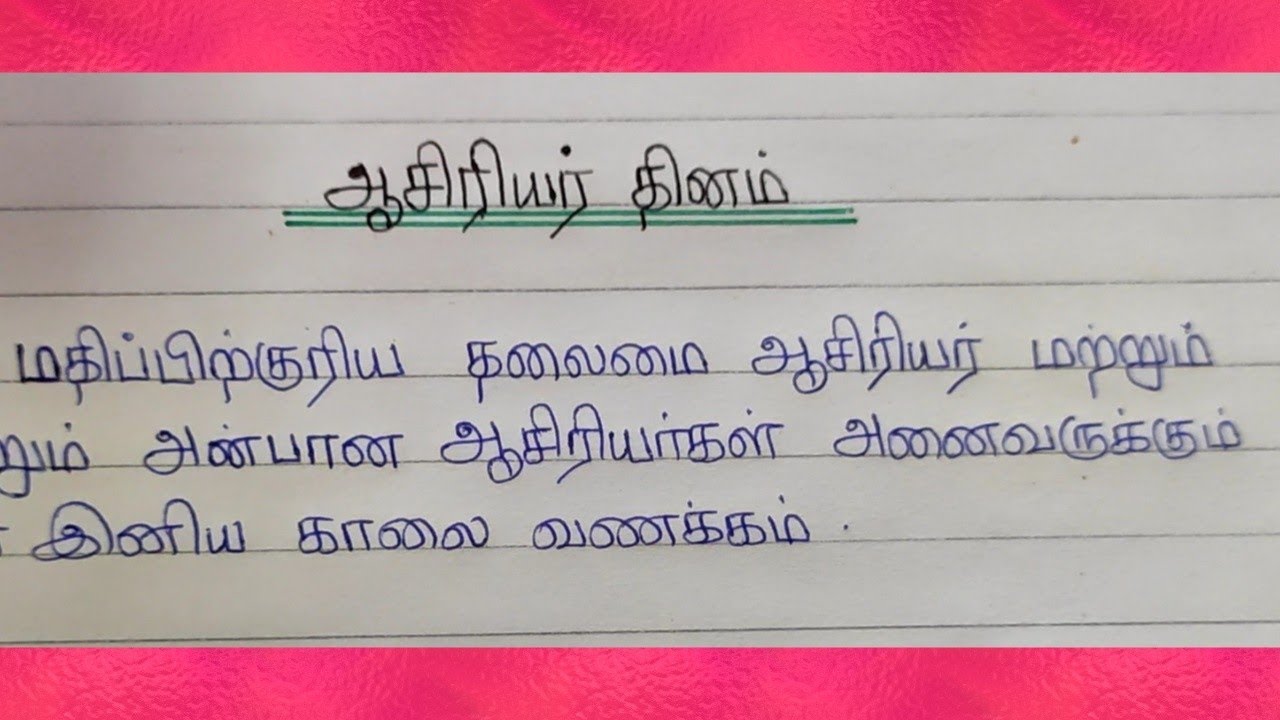 ஆசிரியர் தினம்
மதிப்பிற்குரிய தலைமை ஆசிரியர் மற்றும்
அன்பான ஆசிரியர்கள் அனைவருக்கும்
இனிய காலை வணக்கம்.